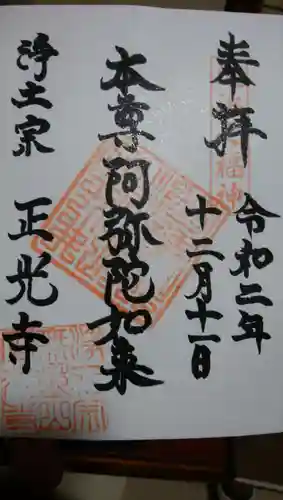 奉拝
令和二年
十二月十一日
本尊阿弥陀如来
浄土宗 正光寺